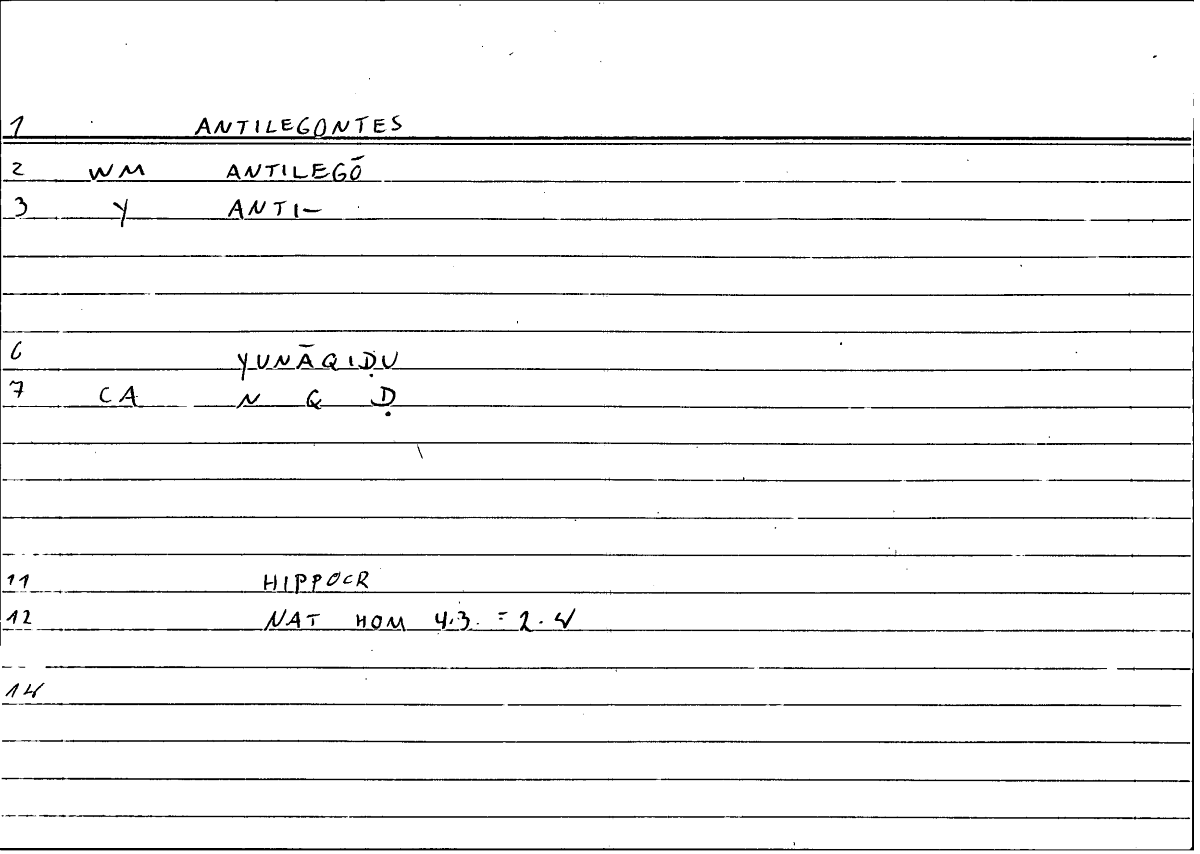 1 ANTILEGONTES
2 WM ANTILEGŌ
3 Y ANTI-
6 YUNĀQIḌU
7 CA N Q Ḍ
11 HIPPOCR
12 NAT HOM 4.3. = 2.4
14